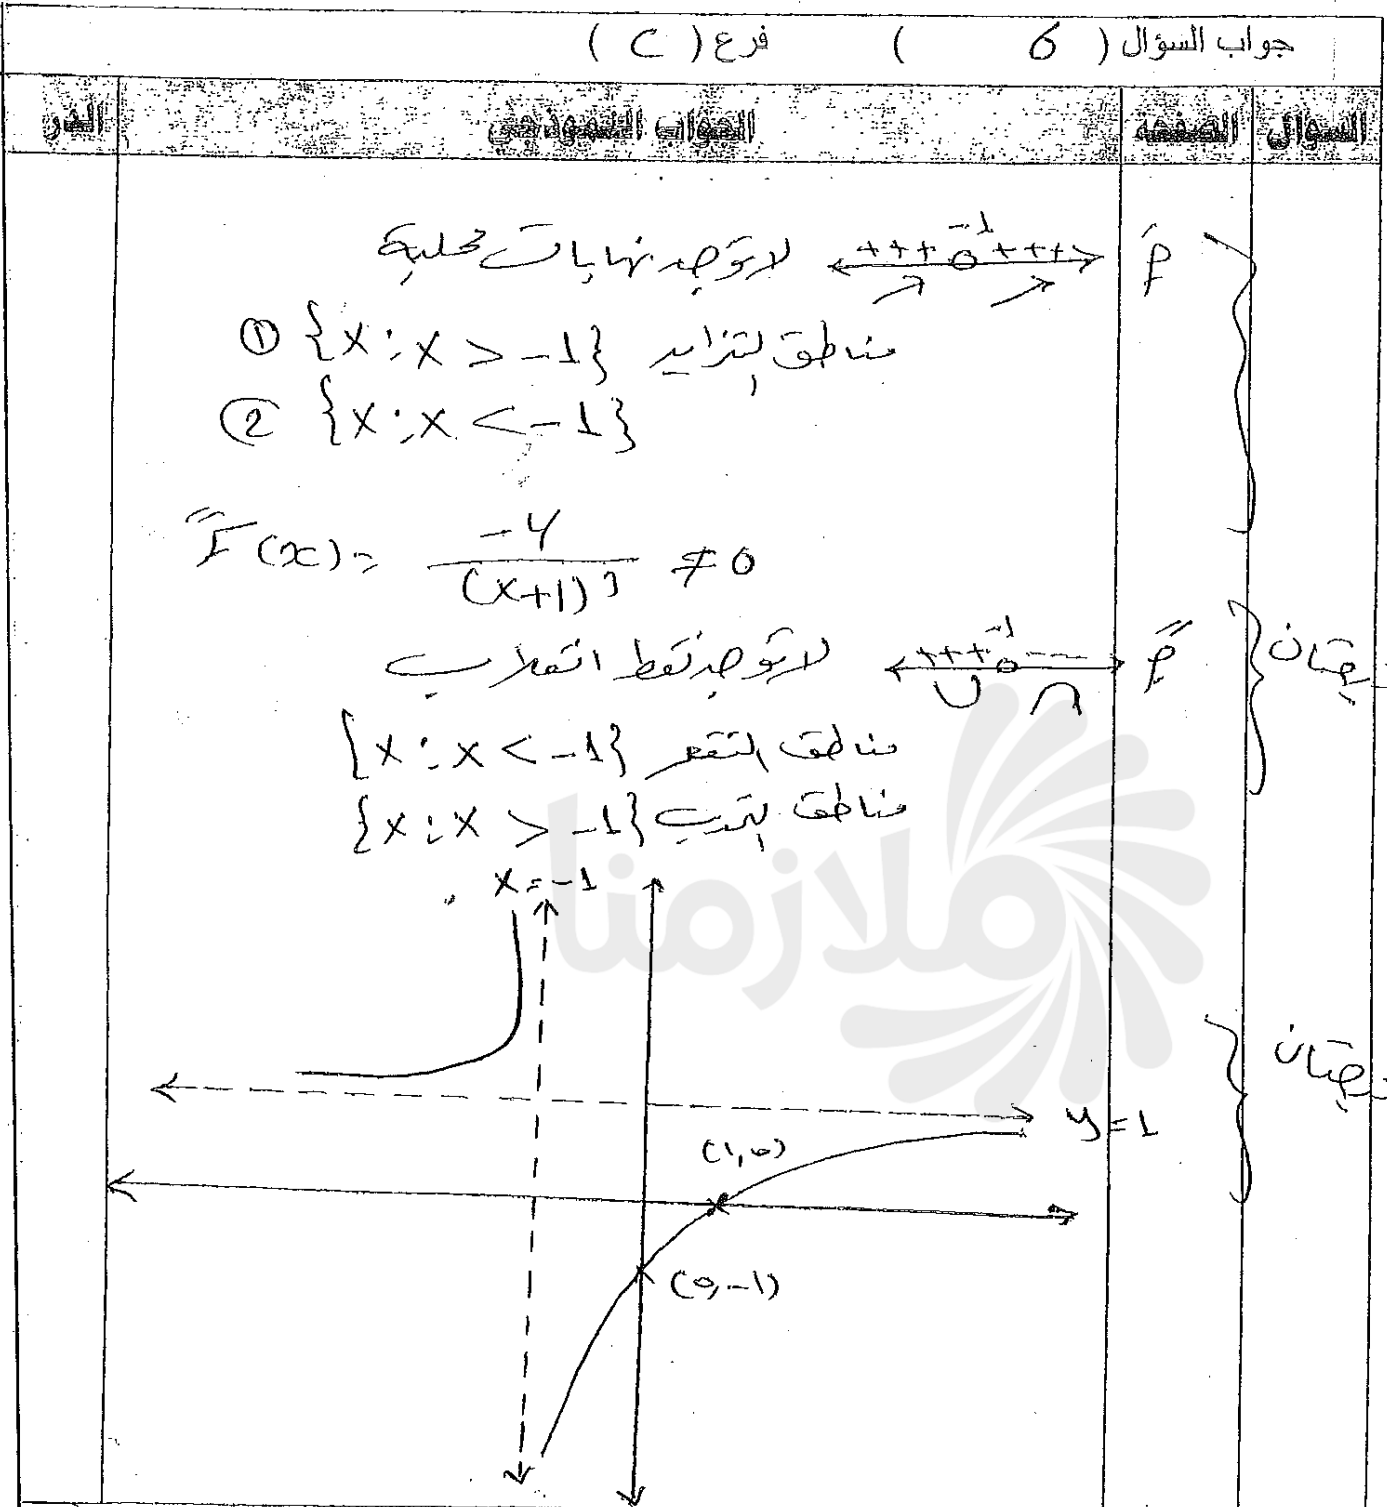 جواب السؤال ( 6 ) فرع ( C )
السؤال الصفحة الجواب النموذجي الدر
f́ +++ -1 +++ لا توجد نهايات محلية
مناطق التزايد {x : x > -1} ①
② {x : x < -1}
f̋(x) = -4 / (x+1)³ ≠ 0
f̋ +++ -1 --- لا توجد نقط انقلاب
مناطق التقعر {x : x < -1}
مناطق التحدب {x : x > -1}
x = -1
y = 1
(1,0)
(0,-1)
ملازمنا